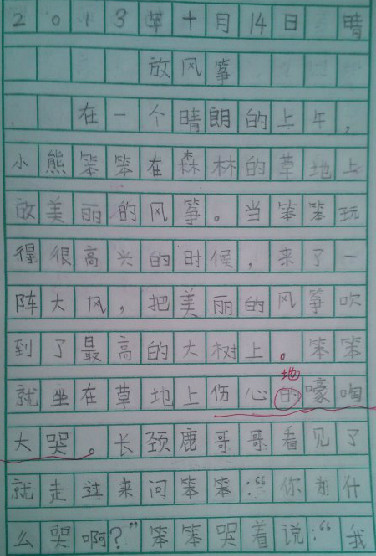 2013年十月14日 晴
放风筝
在一个晴朗的上午，
小熊笨笨在森林的草地上
放美丽的风筝。当笨笨玩
得很高兴的时候，来了一
阵大风，把美丽的风筝吹
到了最高的大树上。笨笨
地
就坐在草地上伤心的嚎啕
大哭。长颈鹿哥哥看见了
就走过来问笨笨：“你为什
么哭啊？”笨笨哭着说：“我